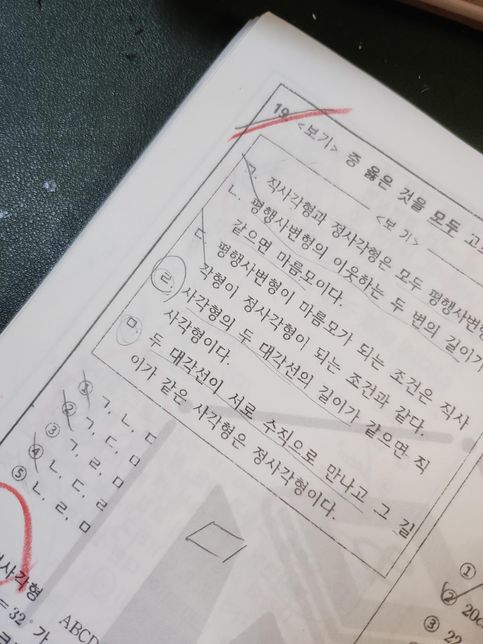 19. <보기> 중 옳은 것을 모두 고
<보 기>
ㄱ. 직사각형과 정사각형은 모두 평행사변형
ㄴ. 평행사변형의 이웃하는 두 변의 길이가
같으면 마름모이다.
ㄷ. 평행사변형이 마름모가 되는 조건은 직사
각형이 정사각형이 되는 조건과 같다.
ㄹ. 사각형의 두 대각선의 길이가 같으면 직
사각형이다.
ㅁ. 두 대각선이 서로 수직으로 만나고 그 길
이가 같은 사각형은 정사각형이다.
① ㄱ, ㄴ, ㄷ
② ㄱ, ㄷ, ㅁ
③ ㄱ, ㄹ, ㅁ
④ ㄴ, ㄷ, ㄹ
⑤ ㄴ, ㄹ, ㅁ
사각형 ABCD
= 32° 가
①
② 20c
③ 22